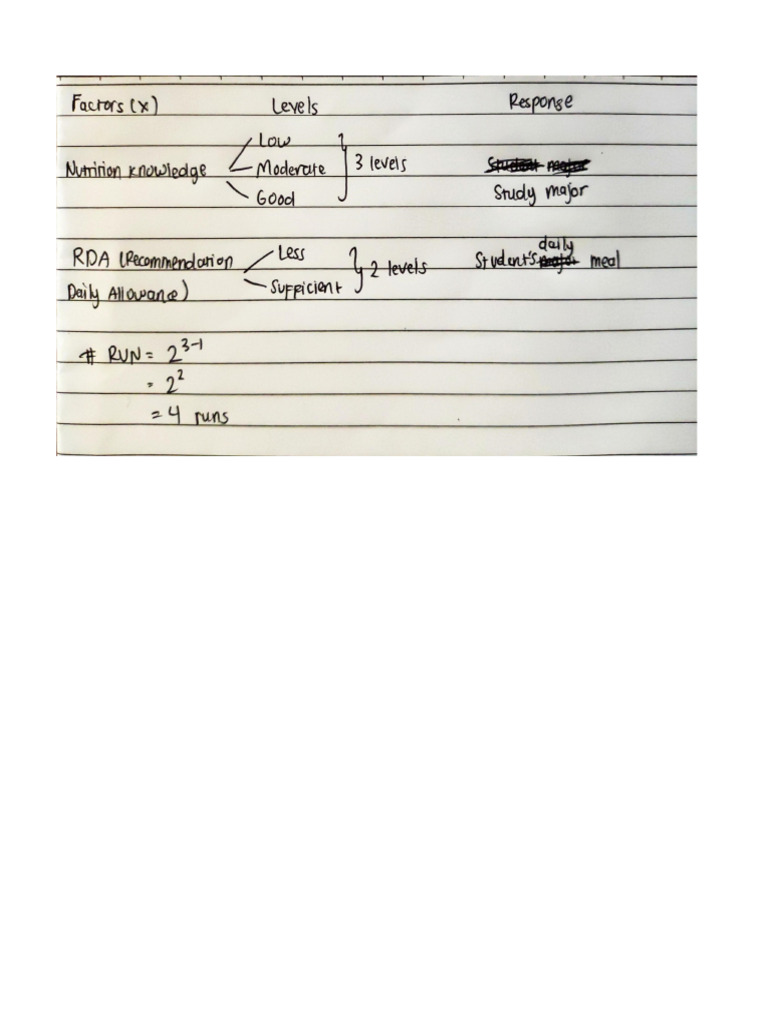 Factors (X) Levels Response
Low
Nutrition knowledge Moderate 3 levels
Good Study major
RDA (Recommendation Less daily
Student's meal
2 levels
Daily Allowance) Sufficient
# RUN = 2^3-1
= 2^2
= 4 runs